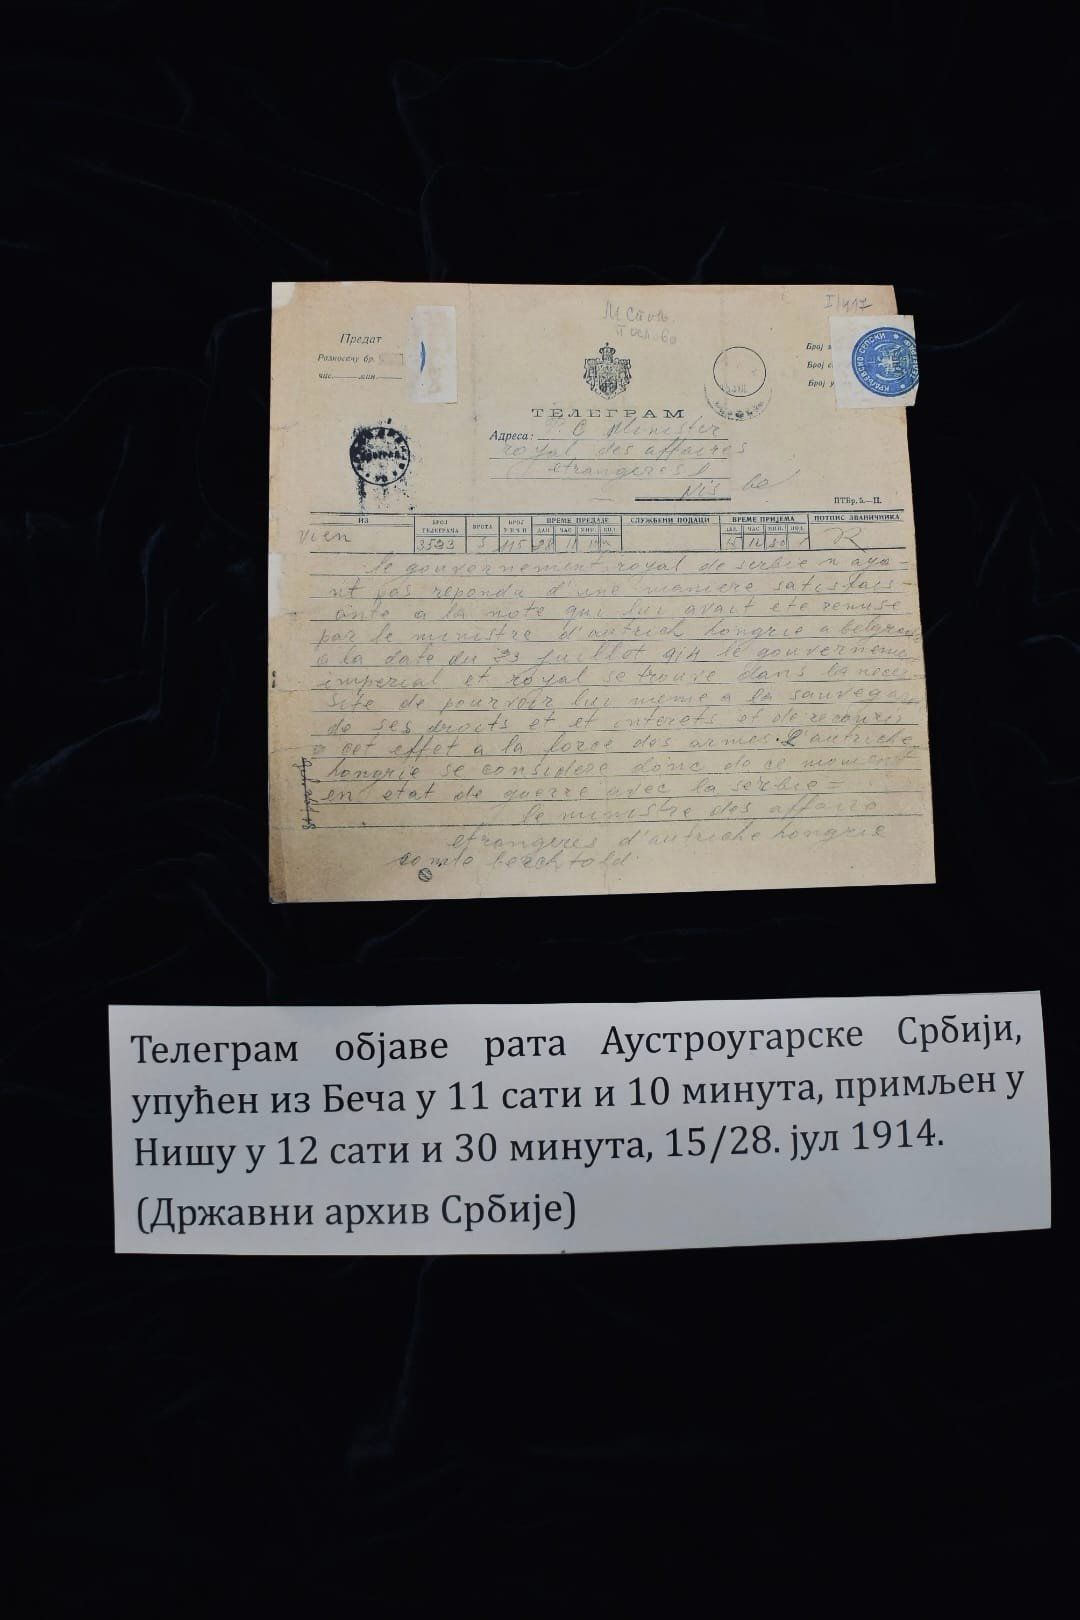 I/417
М Стоь.
послова
Предат
Разносачу бр.
час. мин.
Број
Број
Број
КРАЉЕВСКО-СРПСКИ
ТЕЛЕГРАМ
Адреса: S E Minister
royal des affaires
etrangeres
Nis
ПТБр. 5.—П.
ИЗ БРОЈ ТЕЛЕГРАМА ВРСТА БРОЈ РЕЧИ ВРЕМЕ ПРЕДАЈЕ СЛУЖБЕНИ ПОДАЦИ ВРЕМЕ ПРИЈЕМА ПОТПИС ЗВАНИЧНИКА
ДАН ЧАС МИН. ПОД. ДАН ЧАС МИН. ПОД.
Vien 3523 S 115 28 11 10 15 12 30
le gouvernement royal de serbie n aya-
nt pas repondu d'une maniere satisfais-
ante a la note qui lui avait ete remise
par le ministre d'autrich hongrie a belgrade
a la date du 23 juillet 914 le gouverneme
imperial et royal se trouve dans la neces-
site de pourvoir lui meme a la sauvegar
de ses droits et et interets et de recourir
a cet effet a la force des armes. L'autriche
hongrie se considere donc de ce moment
en etat de guerre avec la serbie =
le ministre des affaire
etrangeres d'autriche hongrie
comte berchtold.
Телеграм објаве рата Аустроугарске Србији,
упућен из Беча у 11 сати и 10 минута, примљен у
Нишу у 12 сати и 30 минута, 15/28. јул 1914.
(Државни архив Србије)